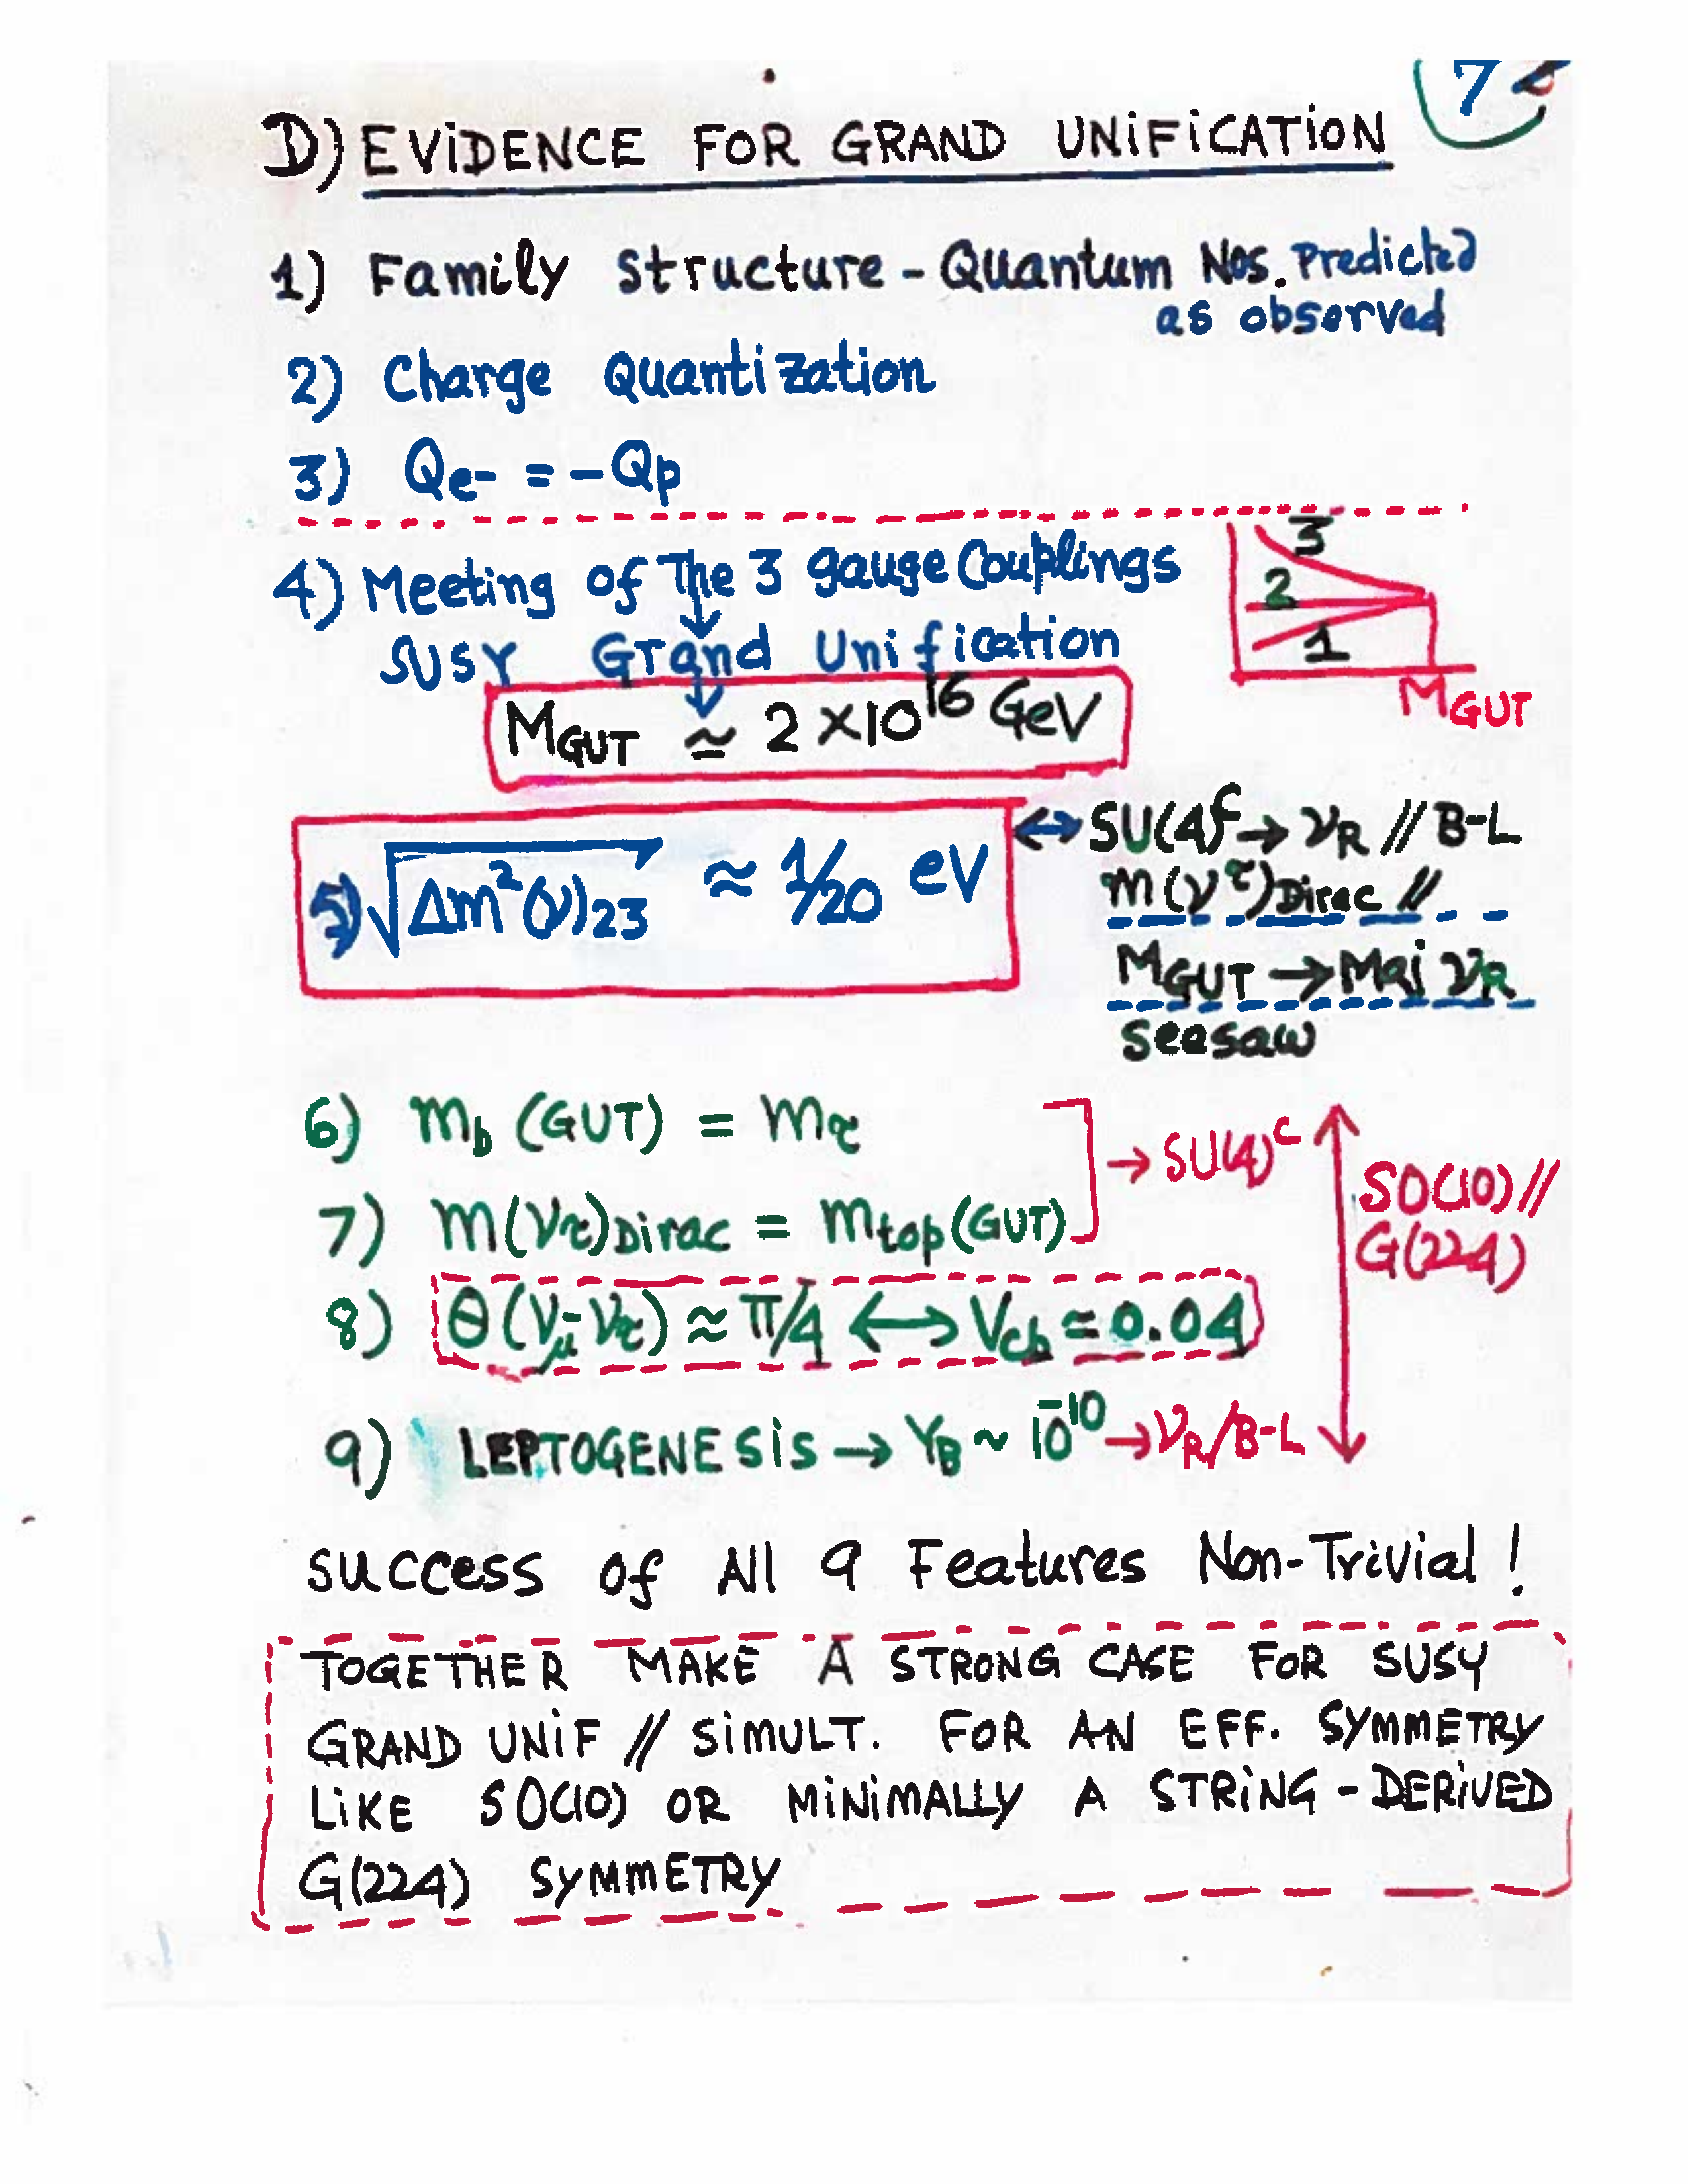 7
D) EVIDENCE FOR GRAND UNIFICATION
1) Family Structure - Quantum Nos. Predicted
as observed
2) Charge Quantization
3) Qe- = -Qp
4) Meeting of The 3 gauge Couplings
SUSY Grand Unification
MGUT ≃ 2 × 10^16 GeV
3
2
1
MGUT
5) √Δm²(ν)23 ≈ 1/20 eV
↔ SU(4)^c → νR // B-L
m(ν^τ)Dirac //
MGUT → Maj νR
Seesaw
6) mb (GUT) = mτ
7) m(ντ)Dirac = mtop(GUT)
→ SU(4)^c
SO(10) //
G(224)
8) θ(νμ-ντ) ≈ π/4 ⟷ Vcb ≃ 0.04
9) LEPTOGENESIS → YB ~ 10^-10 → νR/B-L
Success of All 9 Features Non-Trivial !
TOGETHER MAKE A STRONG CASE FOR SUSY
GRAND UNIF // SIMULT. FOR AN EFF. SYMMETRY
LIKE SO(10) OR MINIMALLY A STRING-DERIVED
G(224) SYMMETRY